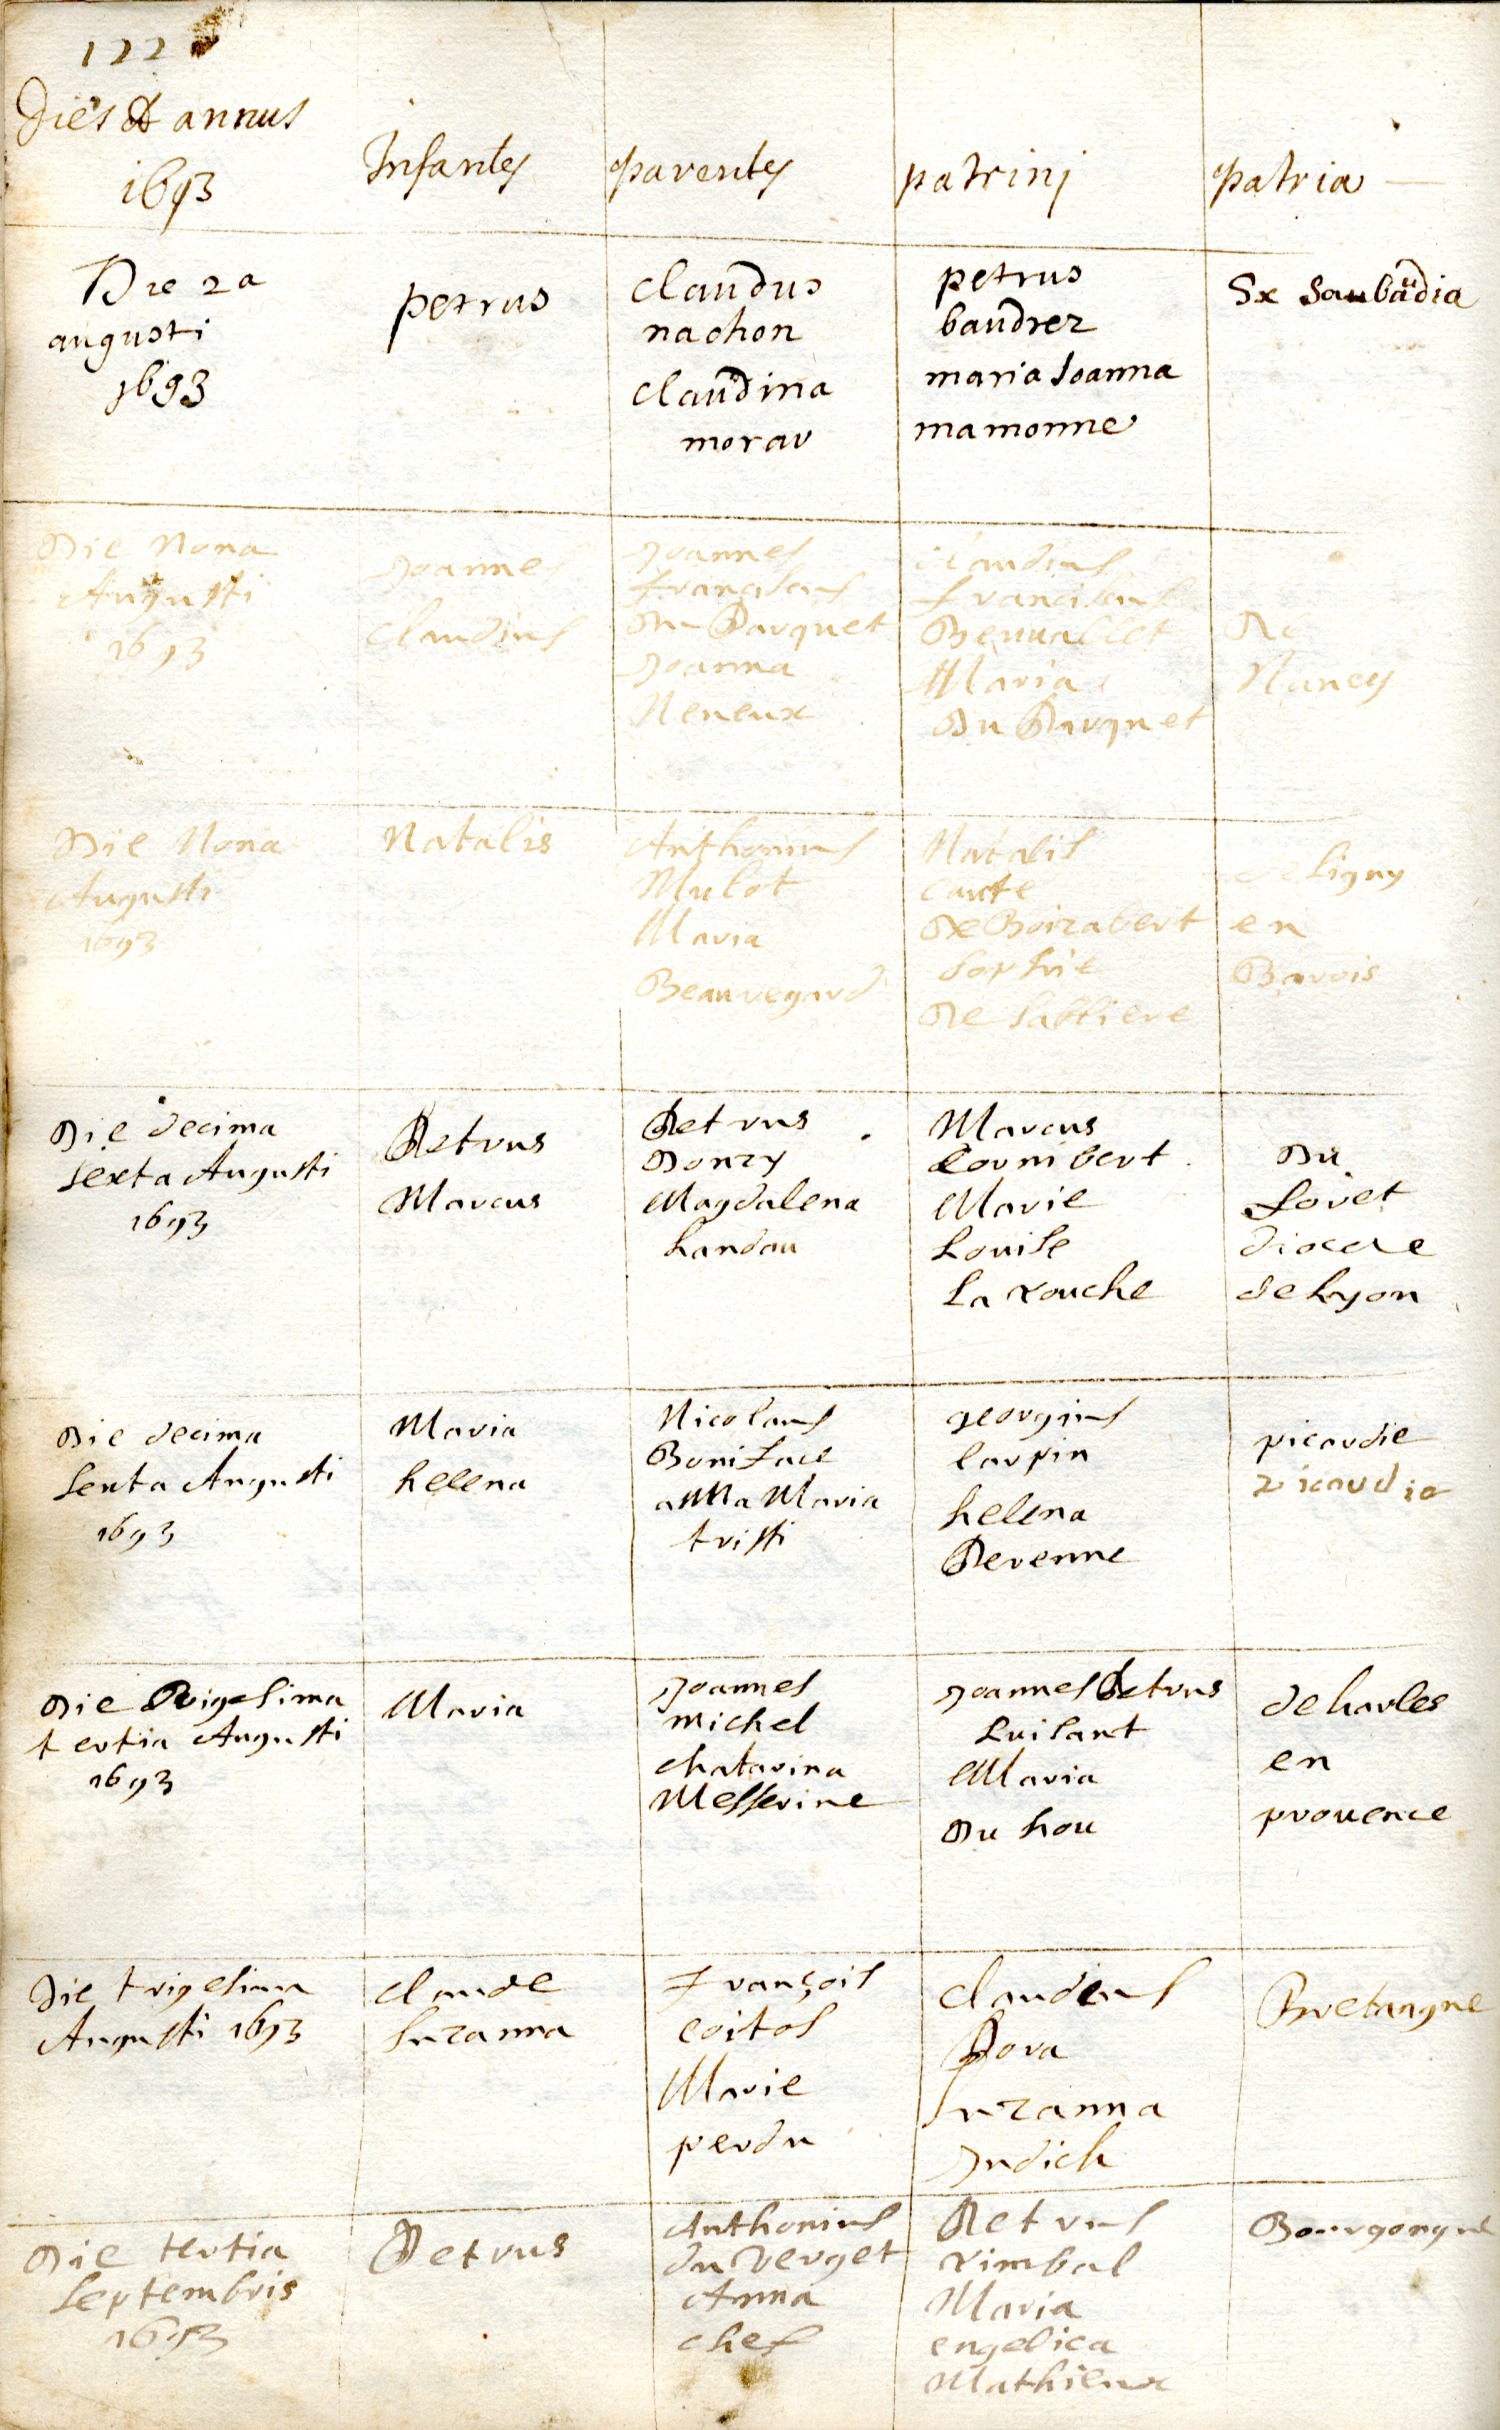 122
Dies & annus
1693
Infantes
parentes
patrini
patria
Die 2a
augusti
1693
petrus
claudus
nachon
claudina
morau
petrus
baudrez
maria Joanna
mamonne
Sx Saubaudia
Die Nona
Augusti
1693
Joannes
Claudius
Joannes
Franciscus
Du Parquet
Joanna
Neneux
Claudius
Franciscus
Benuallet
Maria
Du Parquet
De
Nancy
Die Nona
Augusti
1693
Natalis
Anthonius
Mulot
Maria
Beauregard
Natalis
caute
De Boirabert
Sophie
De Sabliere
de Ligny
en
Barois
Die decima
sexta Augusti
1693
Petrus
Marcus
Petrus
Donzy
Magdalena
handau
Marcus
Cornibert
Marie
Louise
La rouche
Du
Foret
diocese
de Lyon
Die decima
sexta Augusti
1693
Maria
helena
Nicolaus
Boniface
anna Maria
tristi
georgius
larpin
helena
Derenne
picardie
picardia
Die Vigesima
tertia Augusti
1693
Maria
Joannes
michel
chatarina
Messerine
Joannes Petrus
Luisant
Maria
Du hou
de harles
en
prouence
Die trigesima
Augusti 1693
claude
Suzanna
François
coitos
Marie
perdu
Claudius
Pora
Suzanna
Judich
Bretangne
Die tertia
Septembris
1693
Petrus
Anthonius
du verget
Anna
chef
Petrus
rimbal
Maria
engelica
Mathieux
Bourgongne